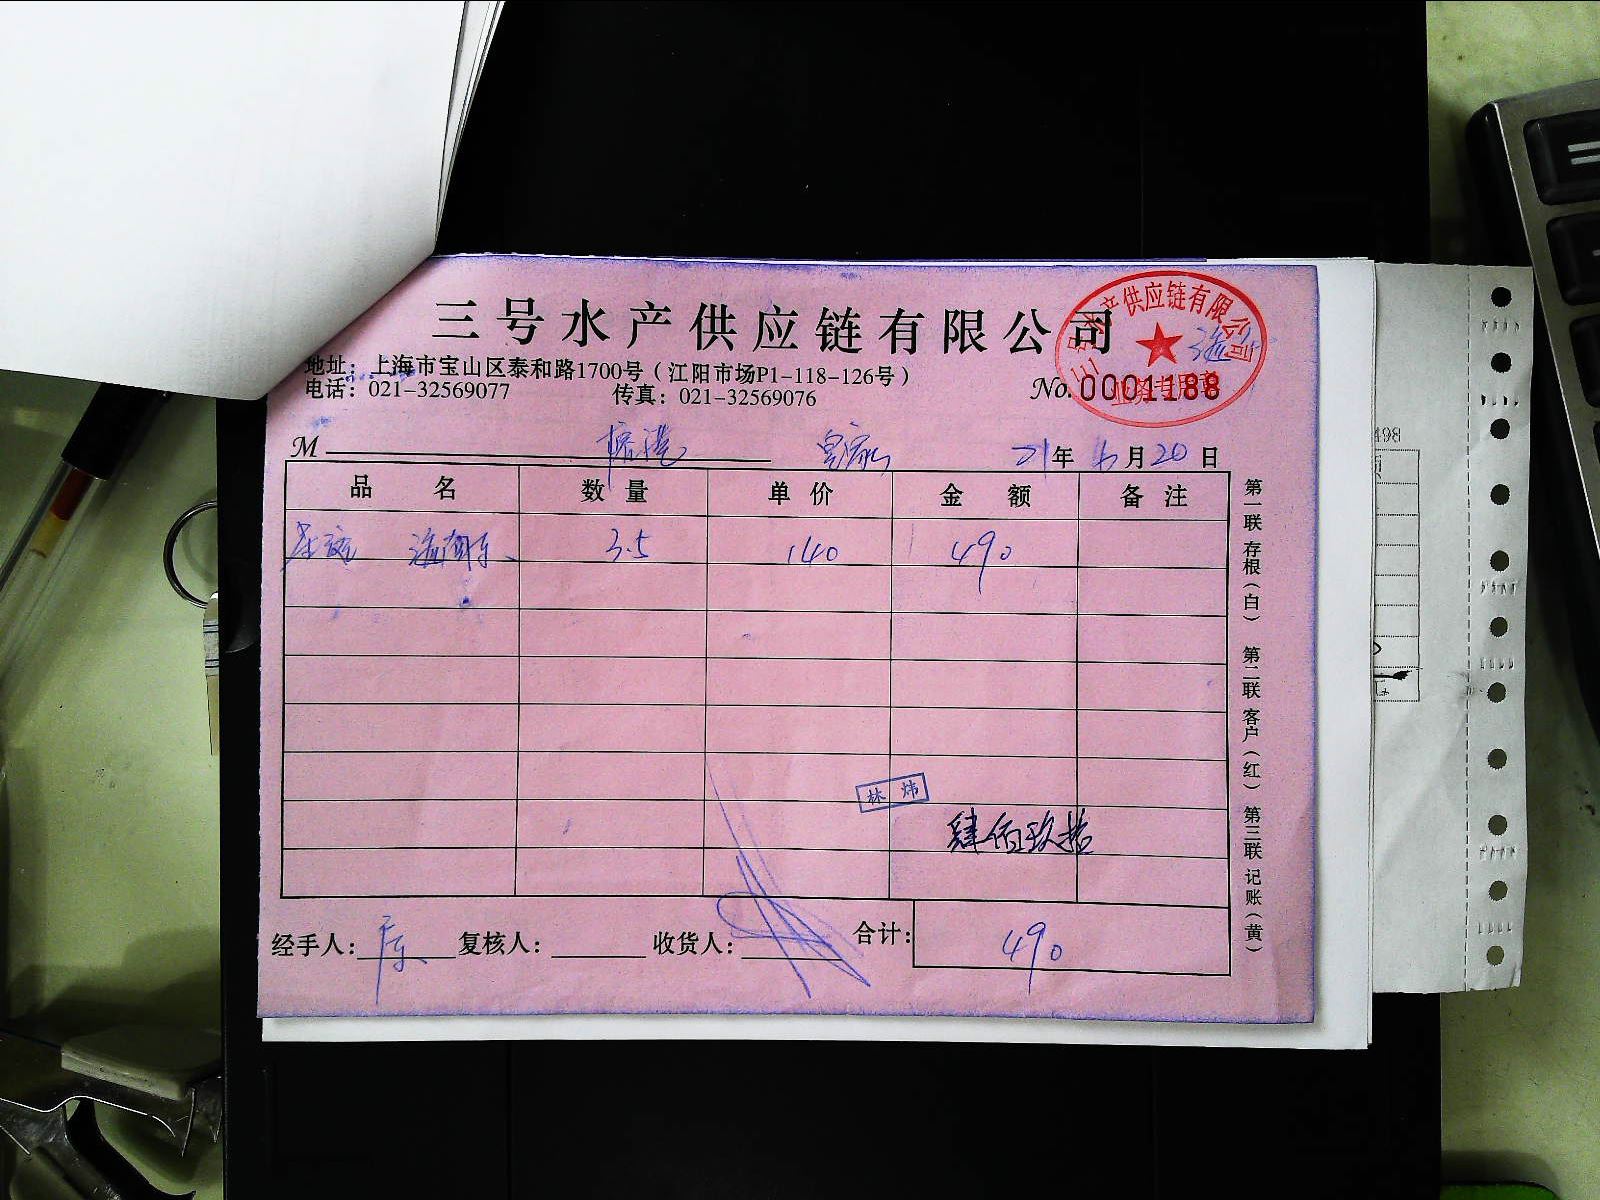 三号水产供应链有限公司
三号水产供应链有限公司
业务专用章
地址：上海市宝山区泰和路1700号（江阳市场P1-118-126号）
电话：021-32569077 传真：021-32569076
No.0001188
M 21年 月20日
品名 数量 单价 金额 备注
3.5 140 490
林炜
肆佰玖拾
经手人： 复核人： 收货人： 合计：490
第一联 存根（白） 第二联 客户（红） 第三联 记账（黄）